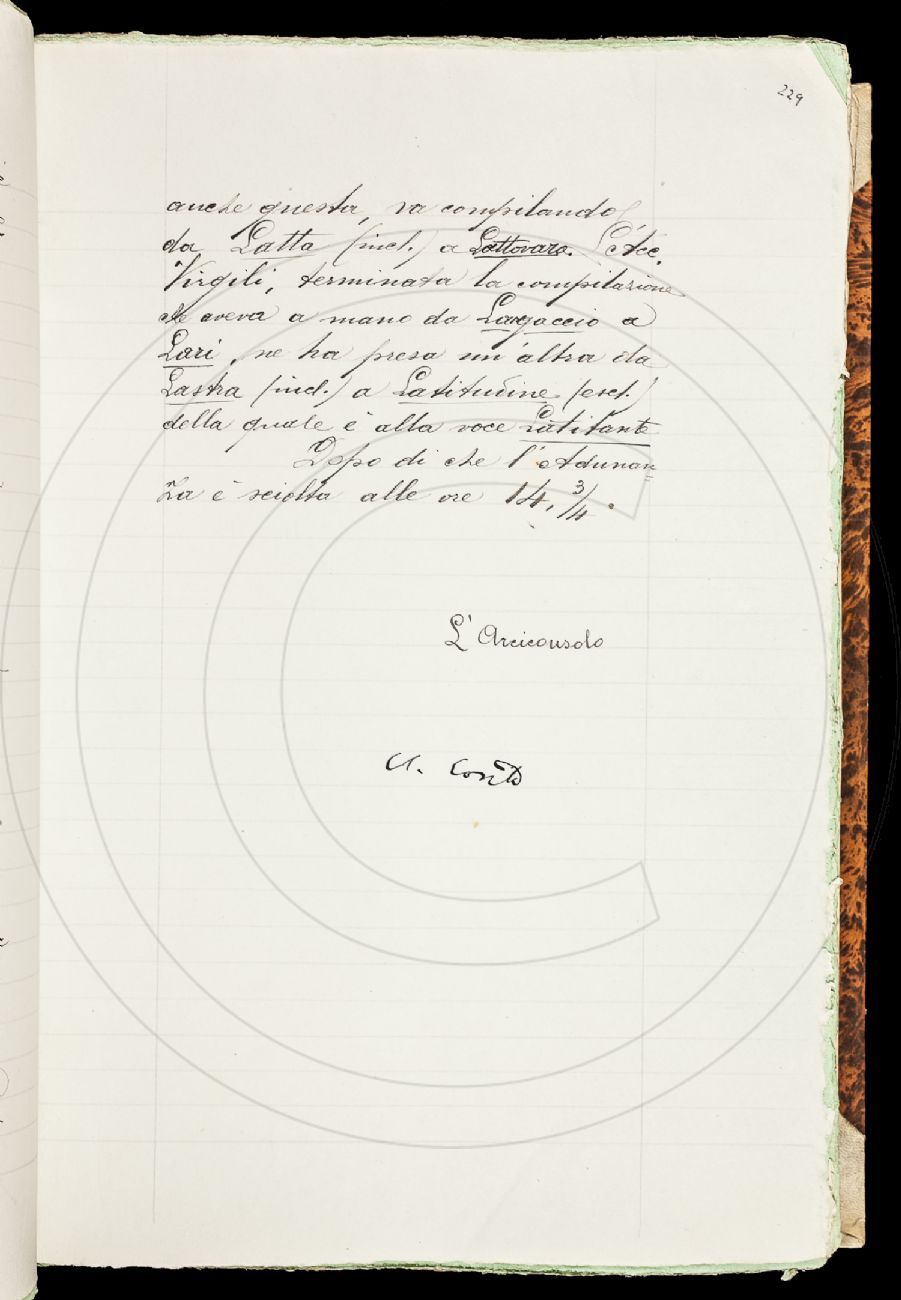 229
anche questa, va compilando
da Latta (incl.) a Lattovaro. L'Acc.
Virgili, terminata la compilazione
che aveva a mano da Largaccio a
Lari, ne ha presa un'altra da
Lastra (incl.) a Latitudine (escl.)
della quale è alla voce Latitante
Dopo di che l'Adunan=
za è sciolta alle ore 14, 3/4.
L'Arciconsolo
A. Conti